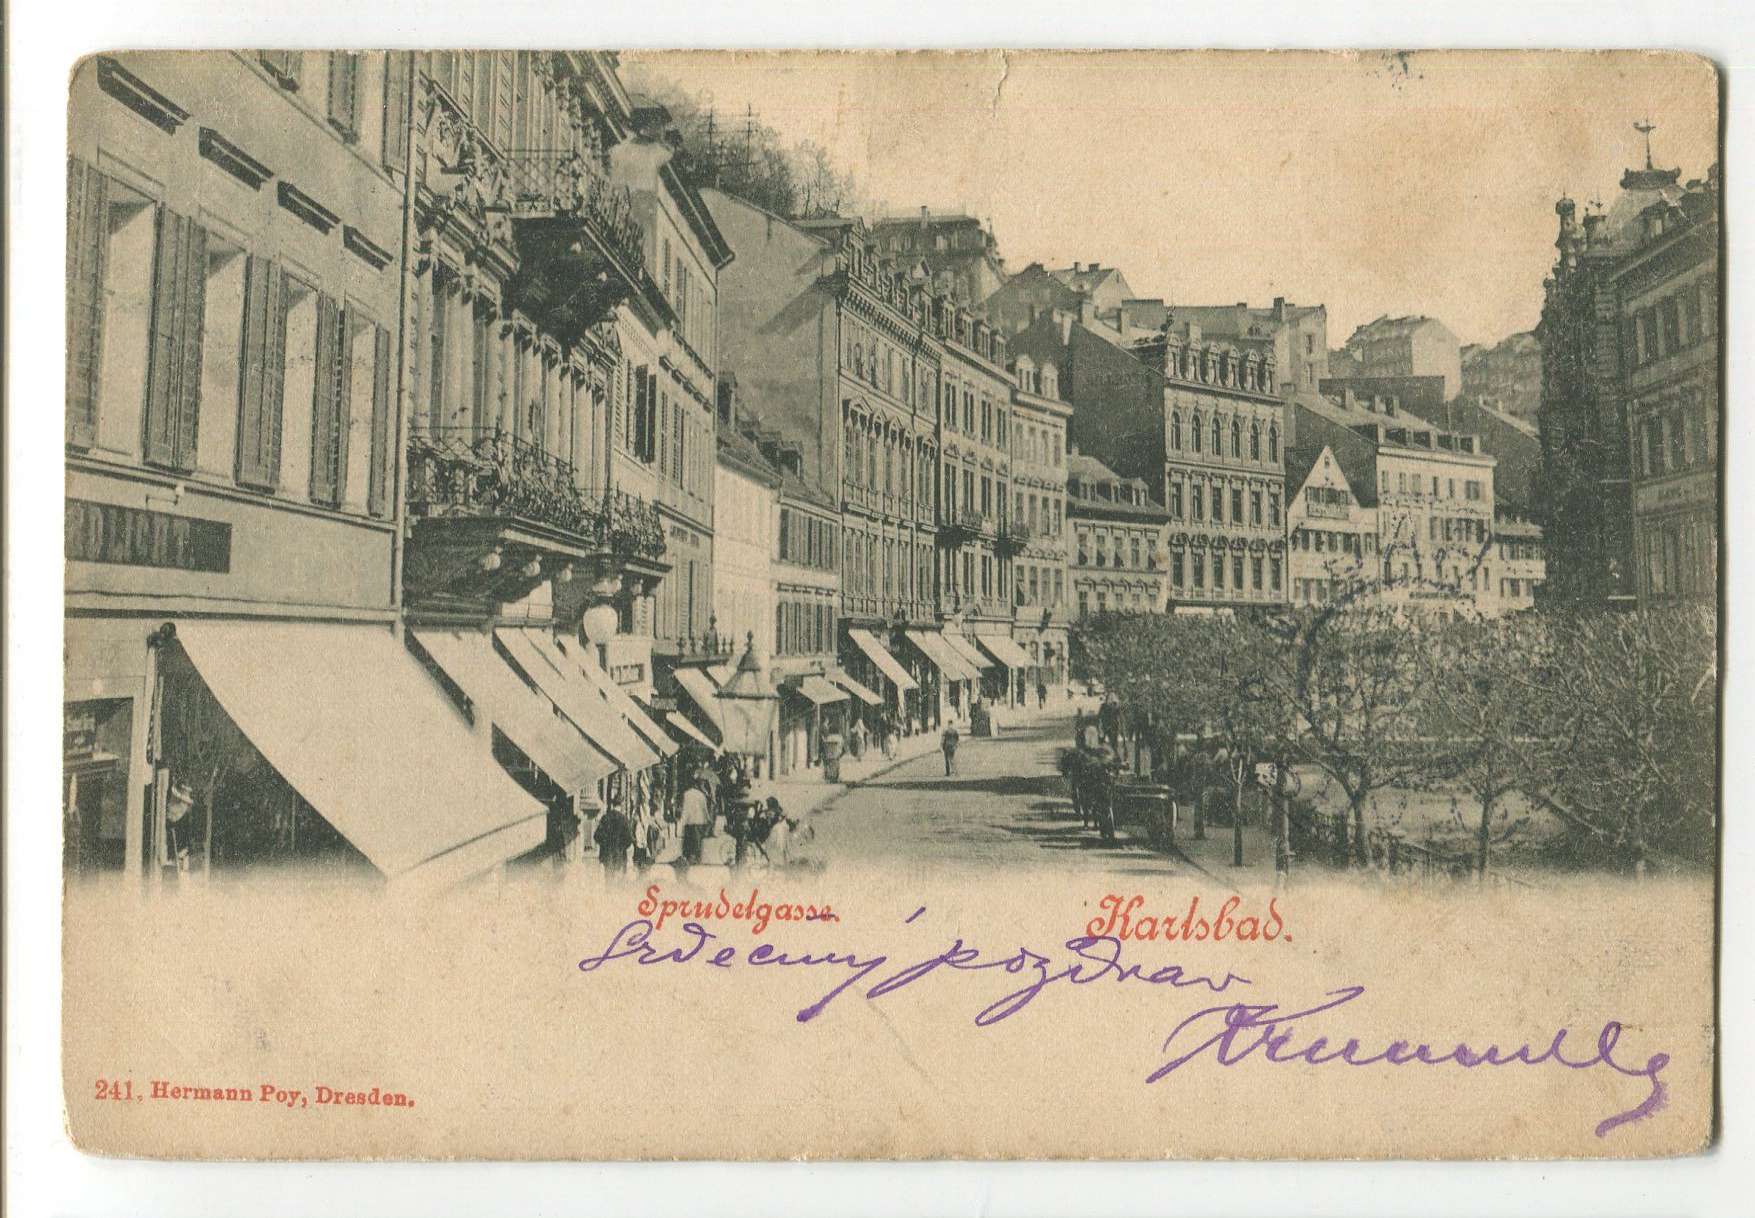 Sprudelgasse.
Karlsbad.
Srdečný pozdrav
241, Hermann Poy, Dresden.